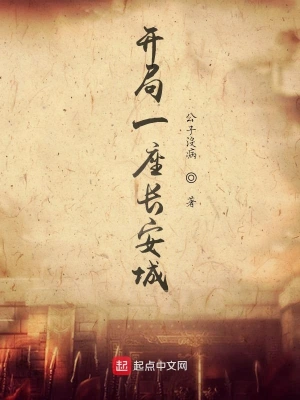 开局一座长安城
公子没病 ◎ 著
起 起点中文网